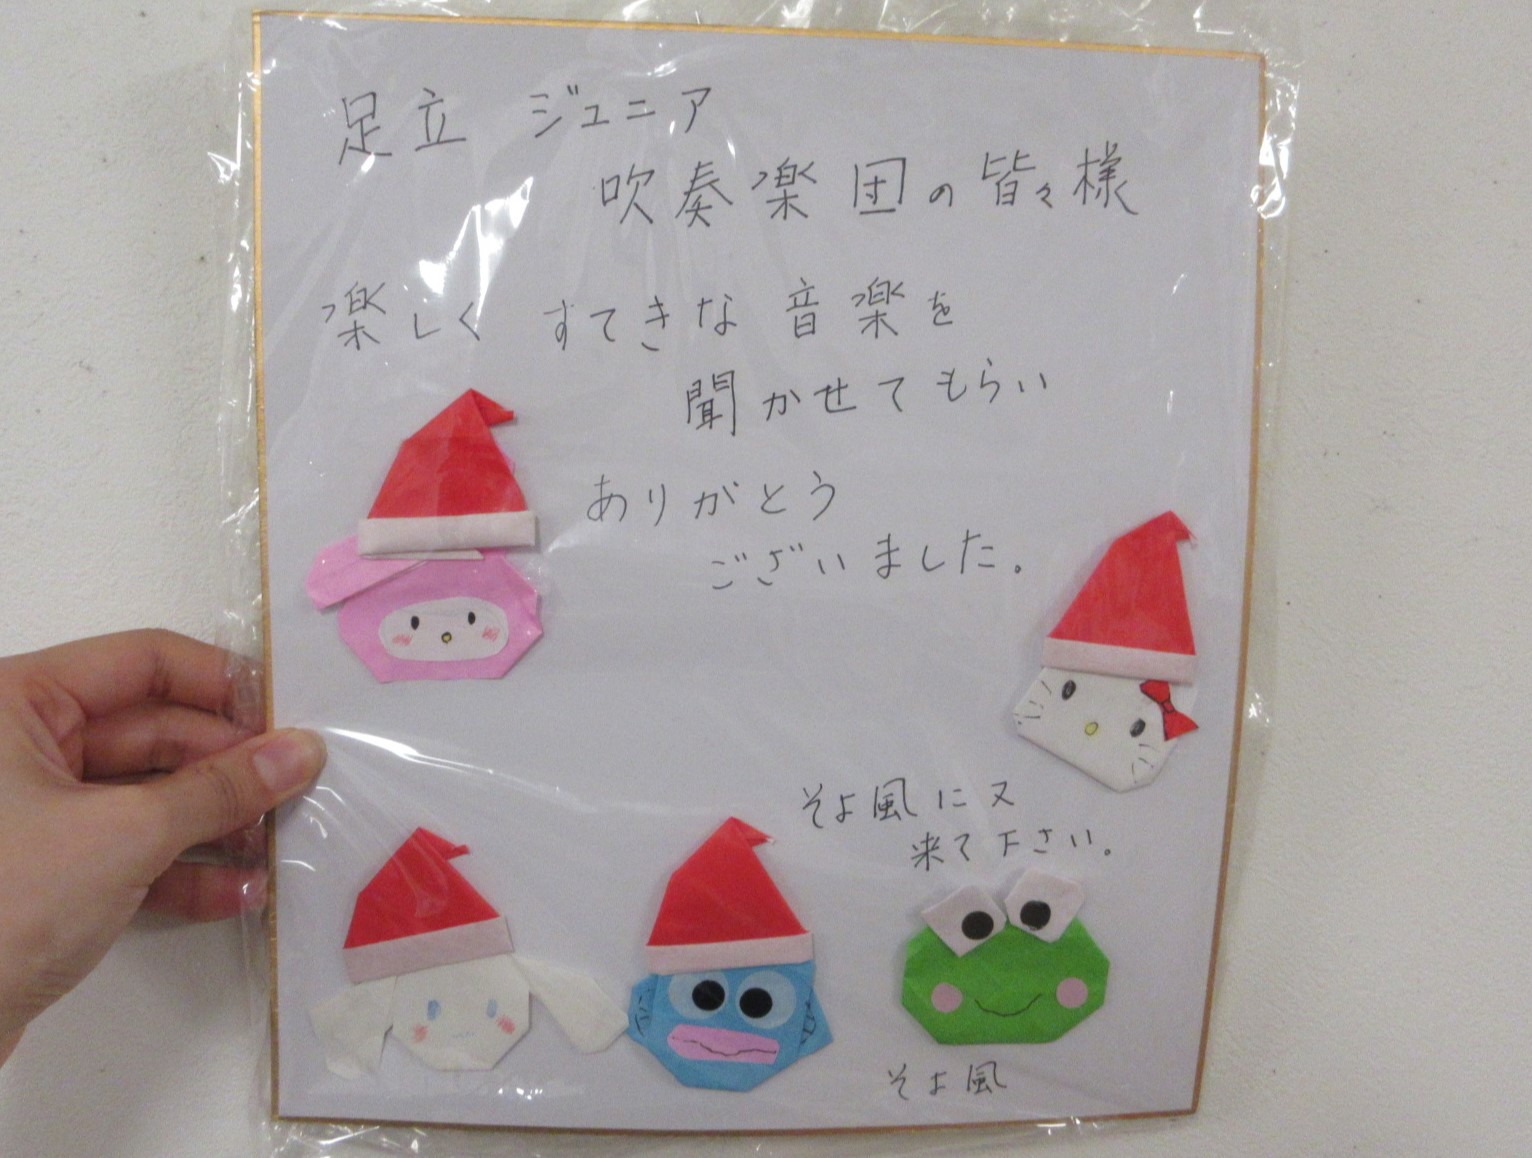 足立 ジュニア
吹奏楽団の皆々様
楽しく すてきな 音楽を
聞かせてもらい
ありがとう
ございました。
そよ風に又
来て下さい。
そよ風